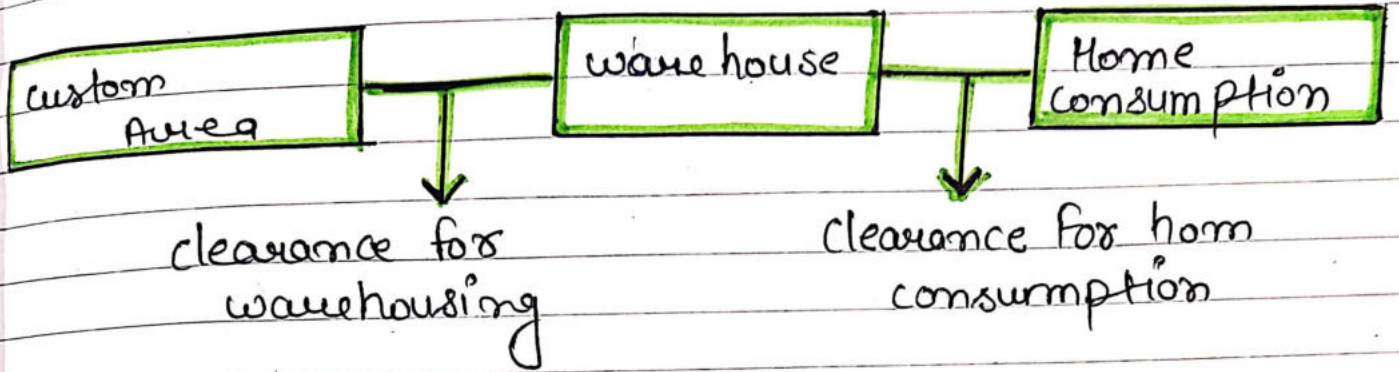 custom
Area
ware house
Home
consumption
clearance for
warehousing
clearance for hom
consumption